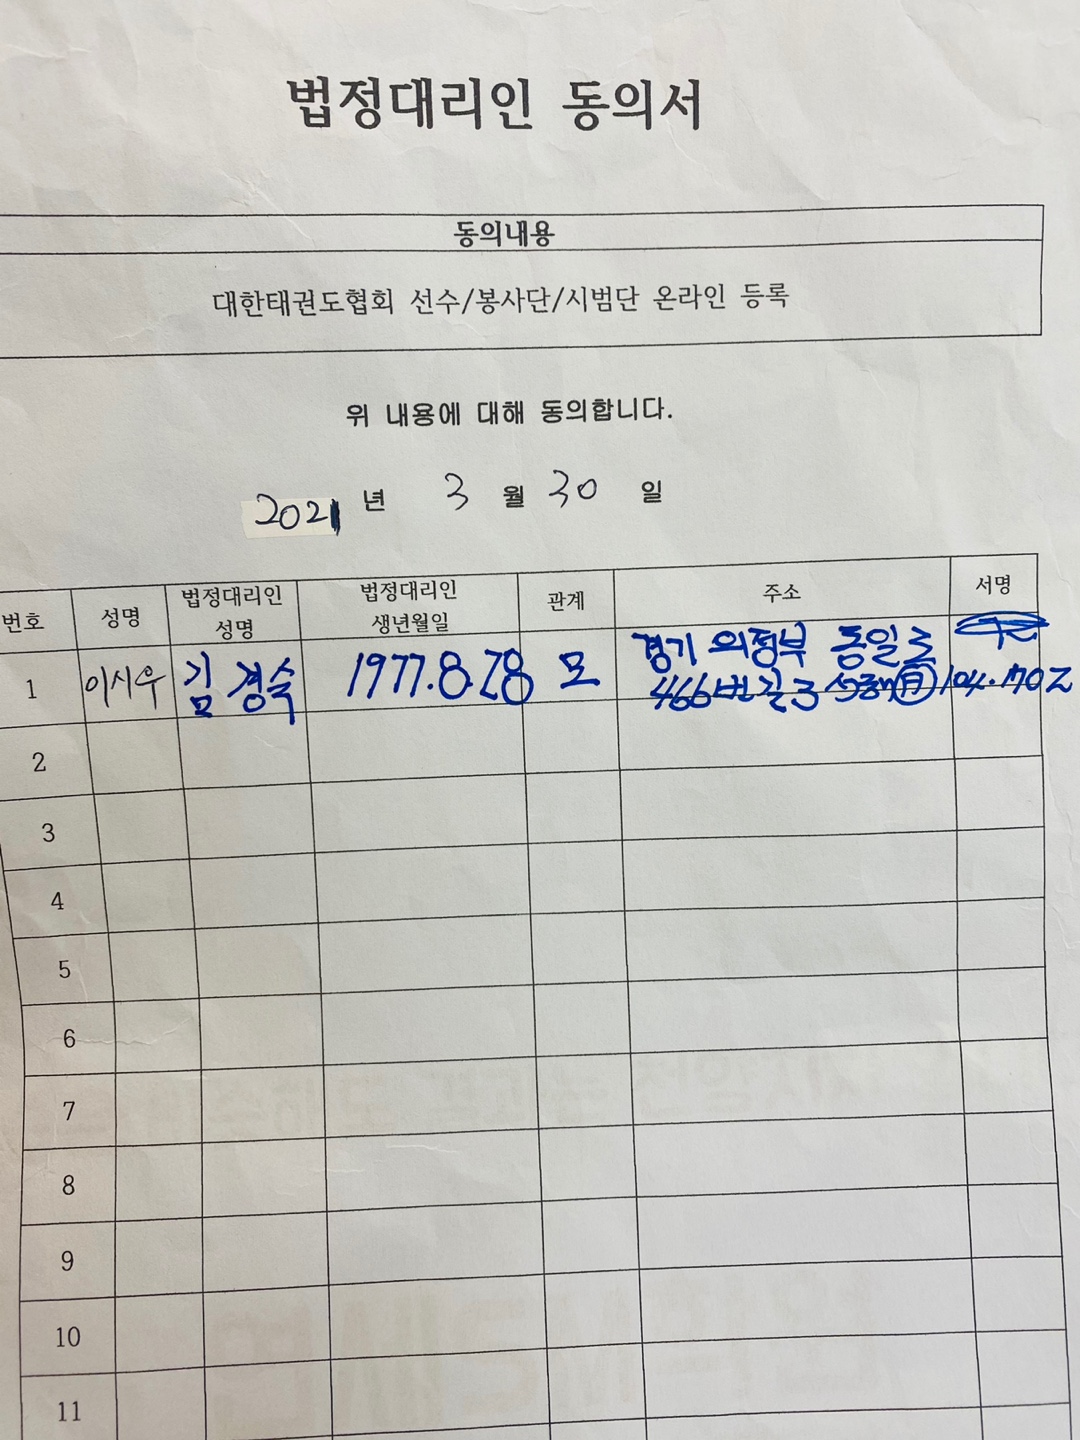 법정대리인 동의서
동의내용
대한태권도협회 선수/봉사단/시범단 온라인 등록
위 내용에 대해 동의합니다.
2021 년 3 월 30 일
번호 성명 법정대리인 성명 법정대리인 생년월일 관계 주소 서명
1 이시우 김경숙 1977.8.28 모 경기 의정부 동일로
466번길 3 104.1702
2
3
4
5
6
7
8
9
10
11